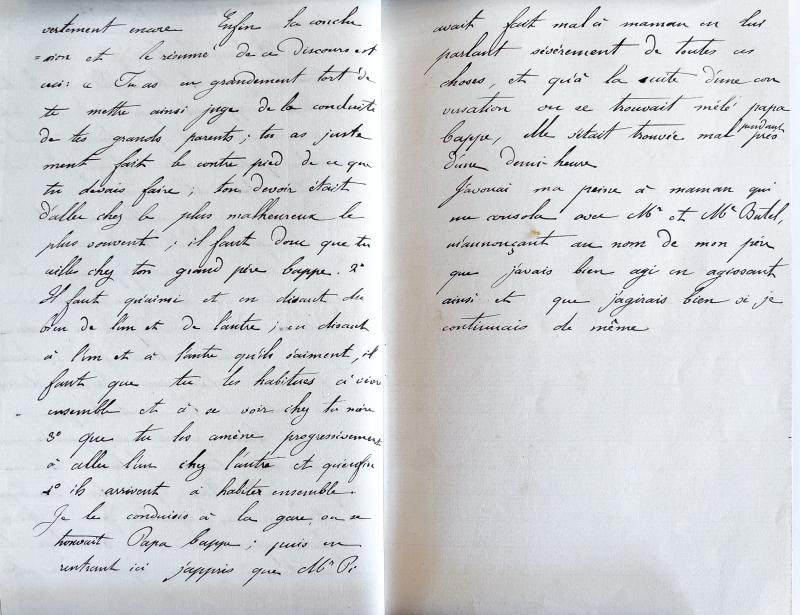 vertement encore Enfin la conclu
=sion et le résumé de ce discours est
ceci: " Tu as eu grandement tort de
te mettre ainsi juge de la conduite
de tes grands parents; tu as juste
ment fait le contre pied de ce que
tu devais faire; ton devoir était
d'aller chez le plus malheureux le
plus souvent; il faut donc que tu
ailles chez ton grand père Cappe. 2°
Il faut qu'ainsi et en disant du
bien de l'un et de l'autre; en disant
à l'un et à l'autre qu'ils s'aiment, il
faut que tu les habitues à vivre
ensemble et à se voir chez ta mère
3° que tu les amène progressivement
à aller l'un chez l'autre et qu'enfin
4° ils arrivent à habiter ensemble.
Je le conduisis à la gare, ou se
trouvait Papa Cappe; puis en
rentrant ici j'appris que Mr Pi
avait fait mal à maman en lui
parlant sévèrement de toutes ces
choses, et qu'à la suite d'une con
versation ou se trouvait mêlé papa
Cappe, elle s'était trouvée mal pendant près
d'une demi-heure
J'avouai ma peine à maman qui
me consola avec Mr et Me Butel,
m'annonçant au nom de mon père
que j'avais bien agi en agissant
ainsi et que j'agirais bien si je
continuais de même